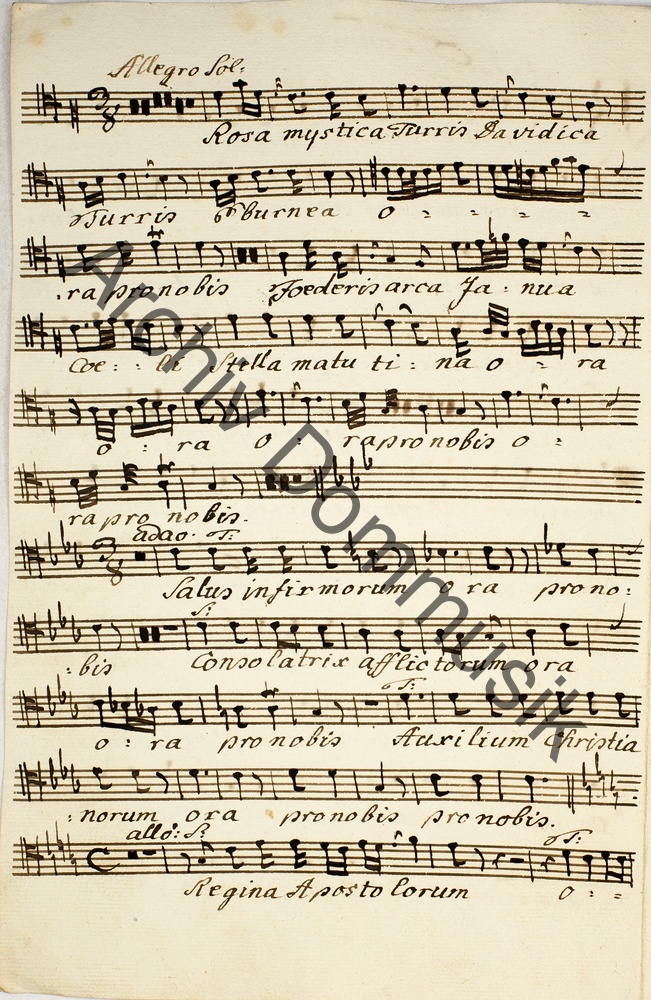 Allegro Sol:
Rosa mystica Turris Davidica
Turris Eburnea o - - - -
ra pro nobis Foederis arca Ja - nua
Coe - : li Stella matu ti : na o - ra
o : ra o : ra pro nobis o :
ra pro nobis.
adao. T:
Salus infirmorum o ra pro no:
S:
:bis Consolatrix afflictorum o ra
T:
o : ra pro nobis Auxilium Christia
:norum ora pro nobis pro nobis.
allo: S: T:
Regina Apostolorum o : :
Archiv Dommusik